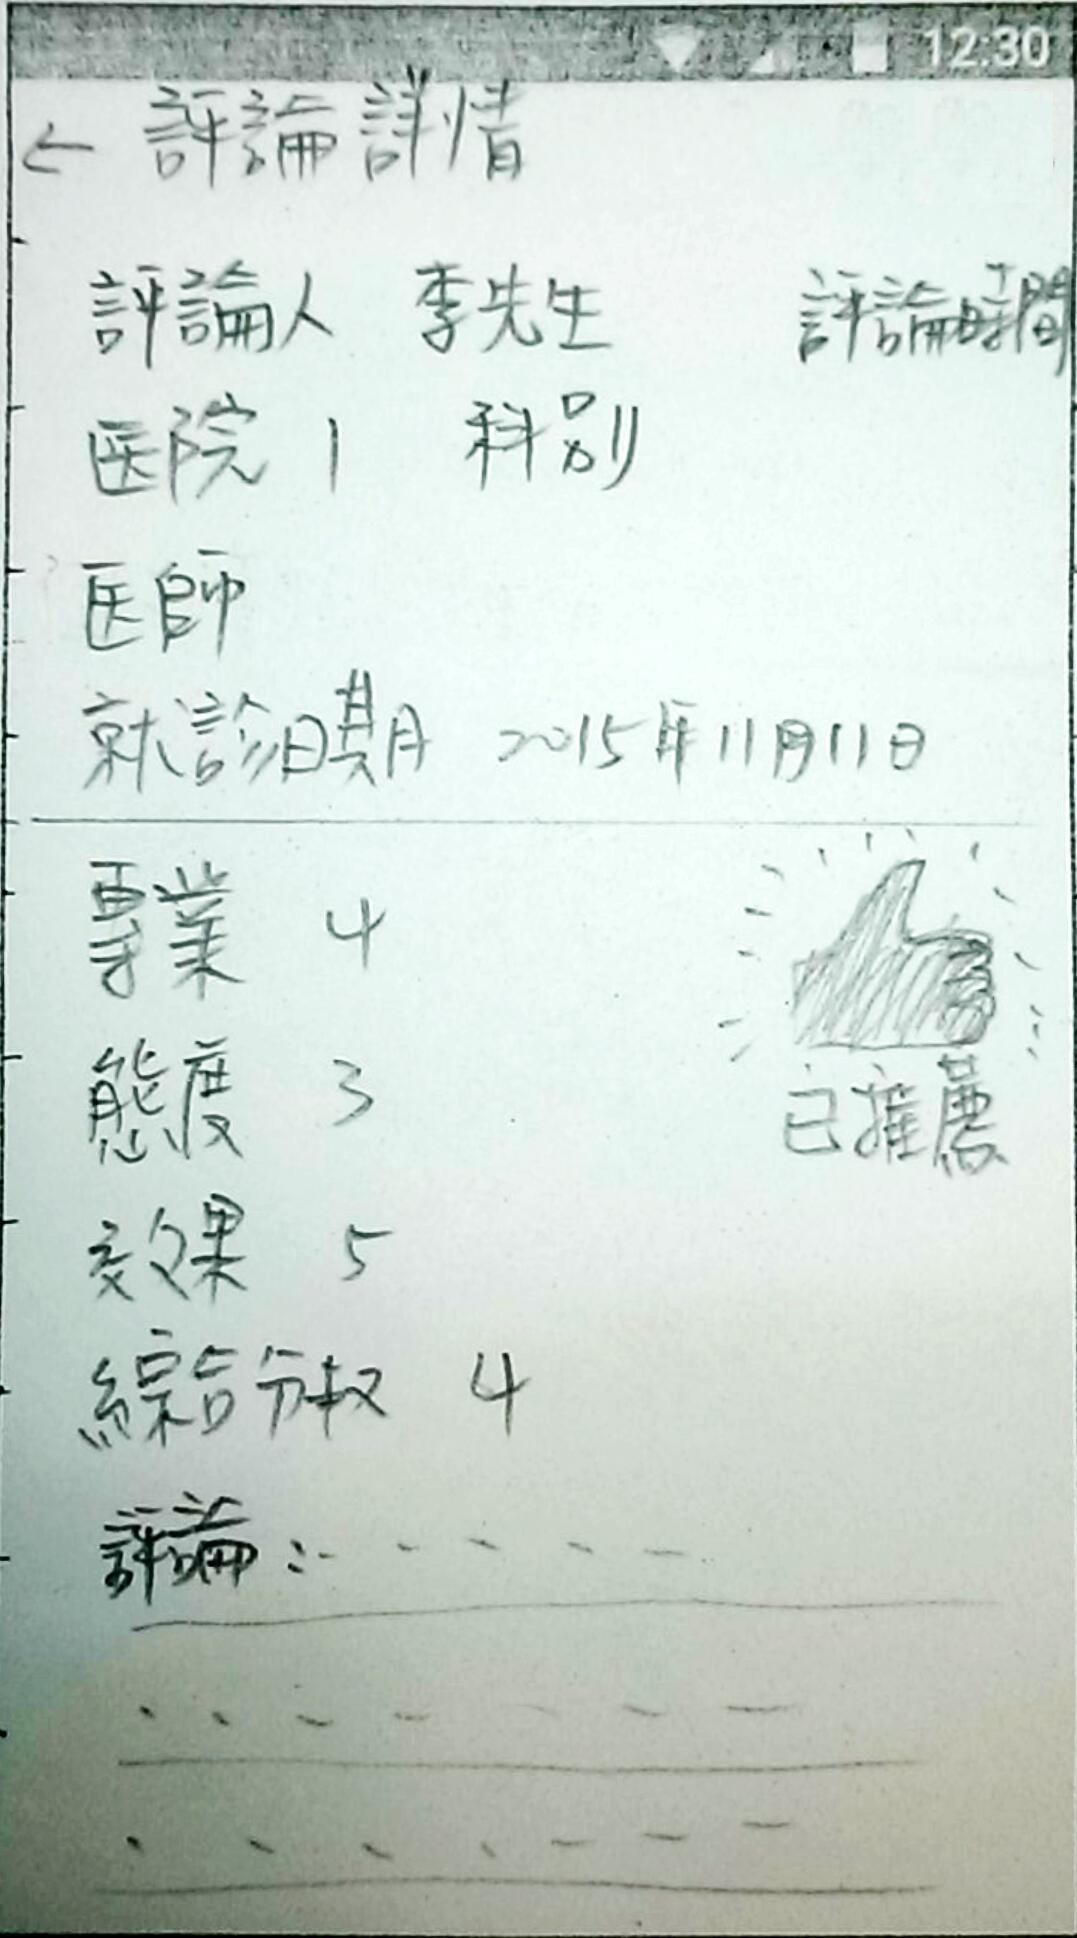 12:30
← 評論詳情
評論人 李先生 評論時間
医院 1 科別
医師
就診日期 2015年11月11日
專業 4
態度 3
已推薦
效果 5
綜合分数 4
評論：